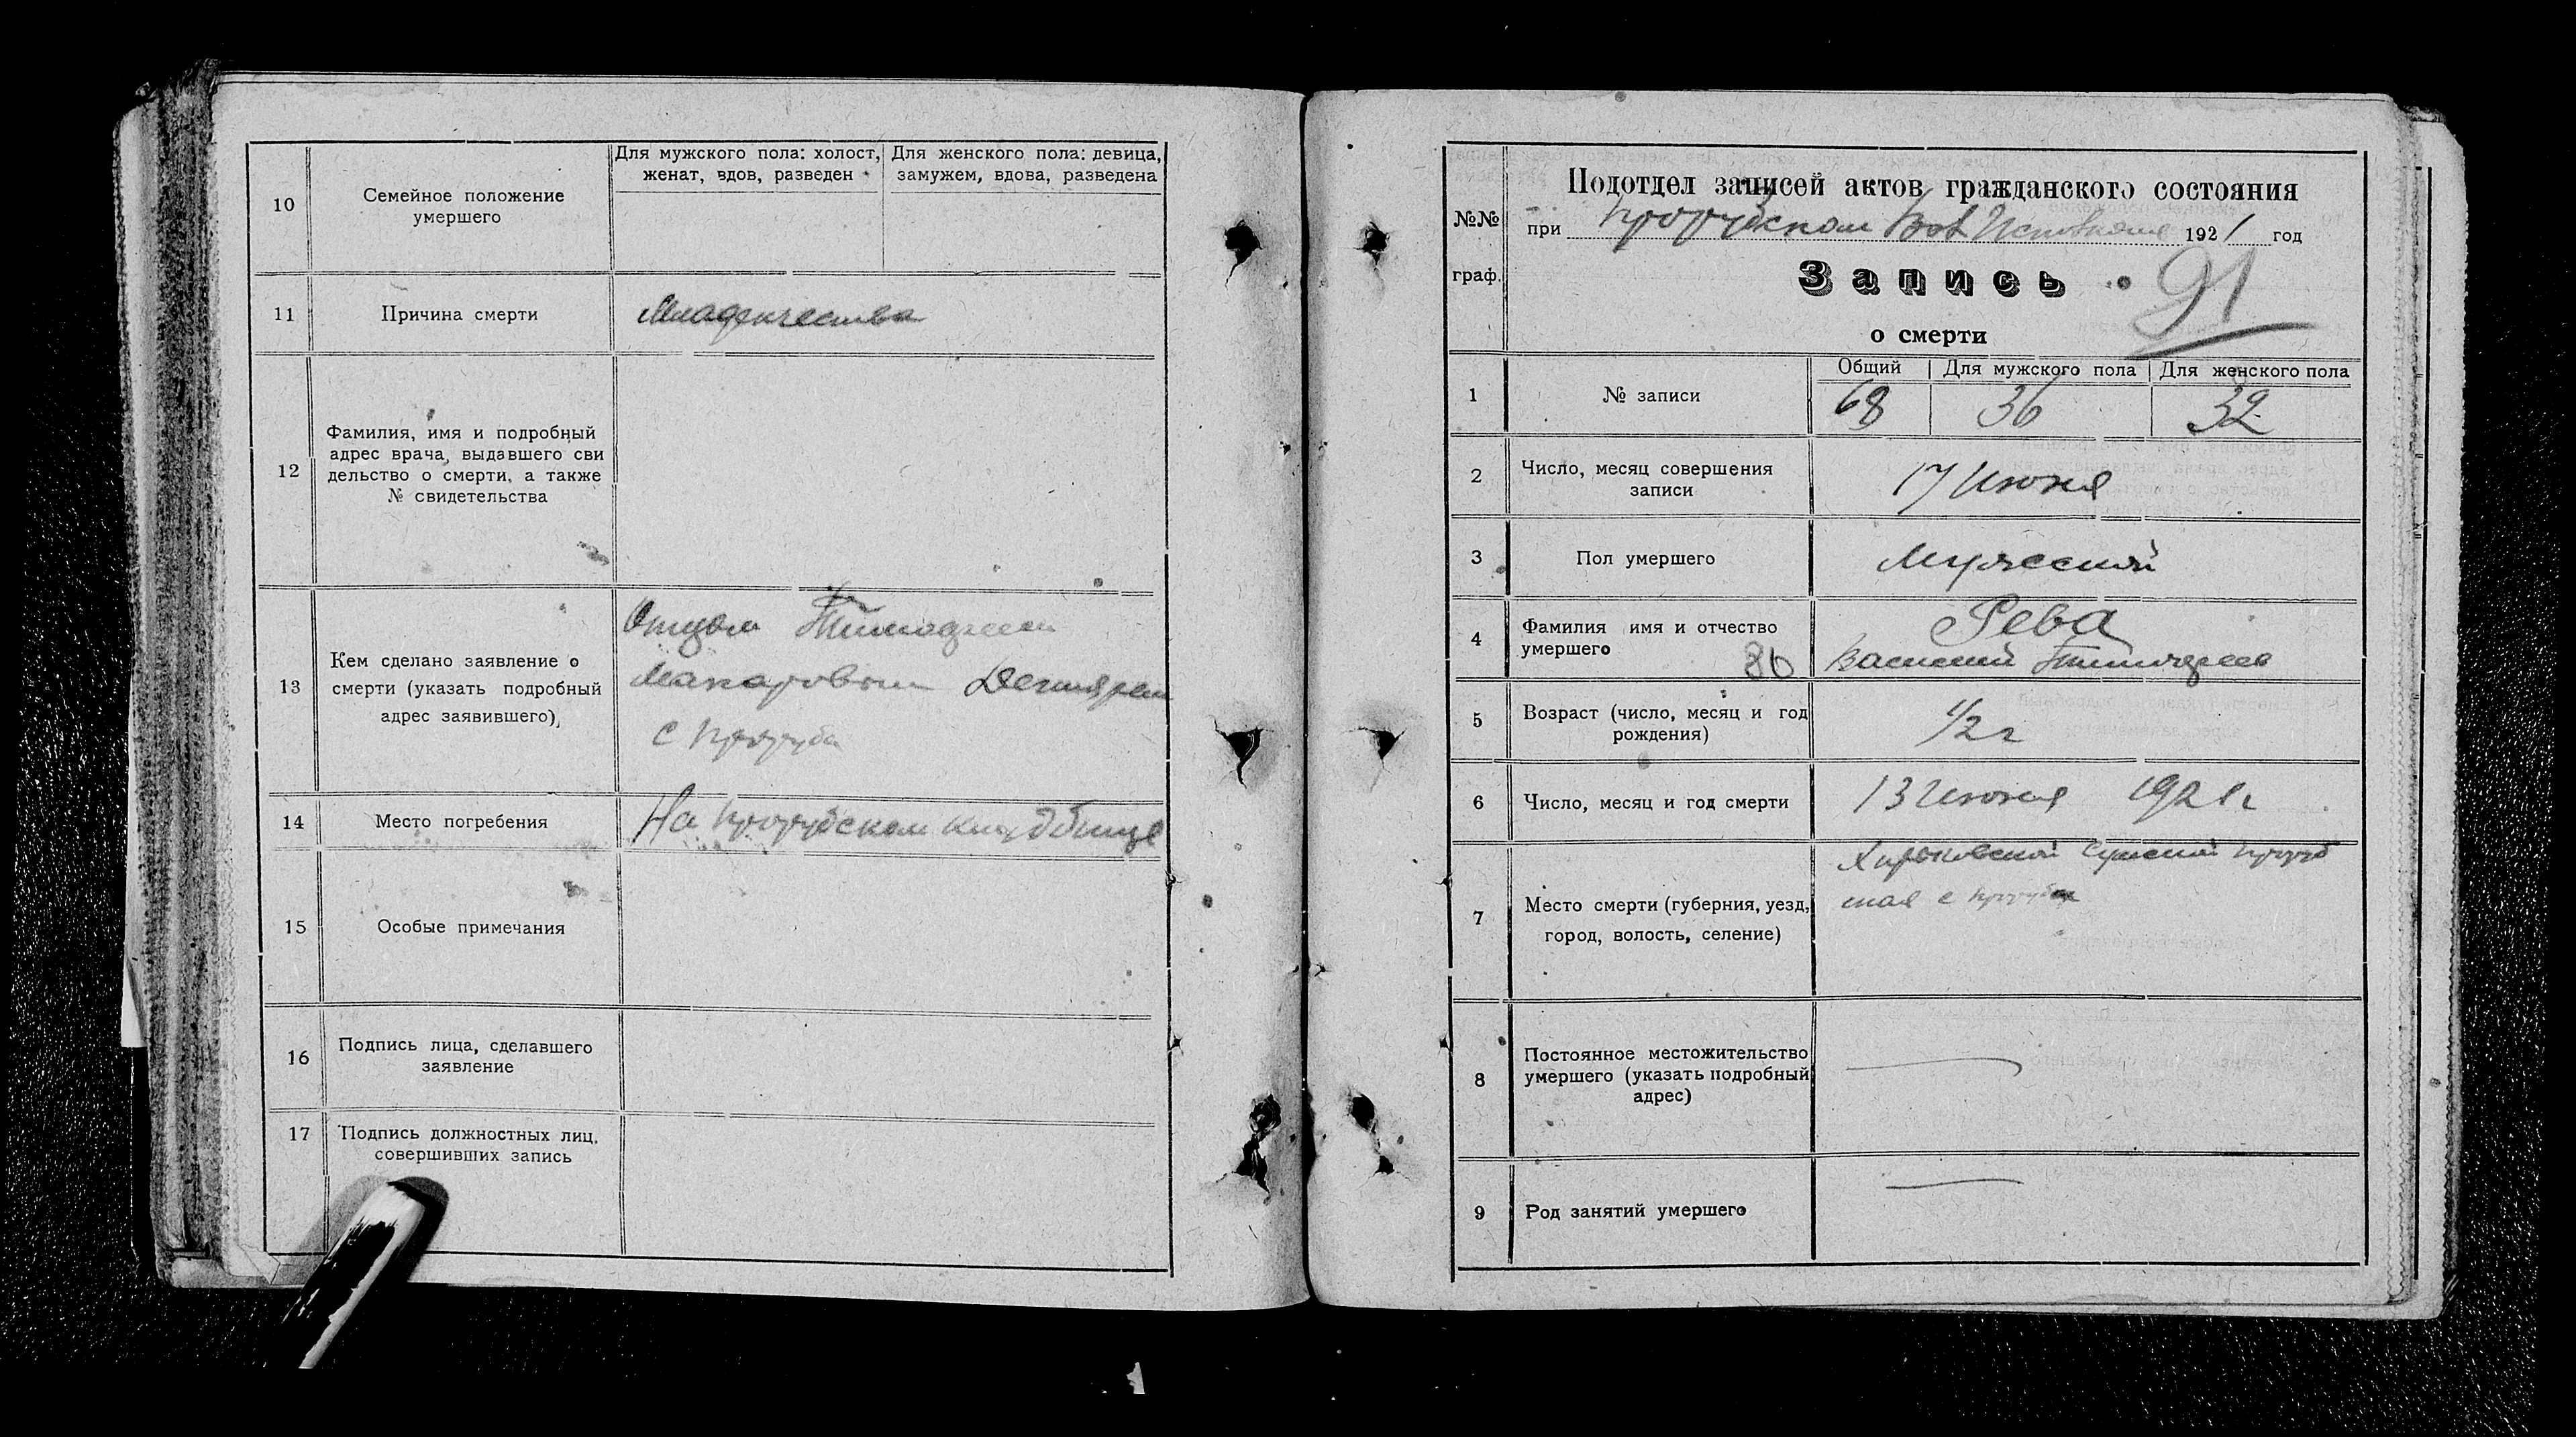 10
Семейное положение
умершего
Для мужского пола: холост,
женат, вдов, разведен
Для женского пола: девица,
замужем, вдова, разведена
11
Причина смерти
Младенчества
12
Фамилия, имя и подробный
адрес врача, выдавшего сви
дельство о смерти, а также
№ свидетельства
13
Кем сделано заявление о
смерти (указать подробный
адрес заявившего)
Отцом Тимофеем
Макаровым
с
14
Место погребения
На кладбище
15
Особые примечания
16
Подпись лица, сделавшего
заявление
17
Подпись должностных лиц,
совершивших запись
№№
граф.
Подотдел записей актов гражданского состояния
при 1921 год
Запись
91
о смерти
1
№ записи
Общий
Для мужского пола
Для женского пола
68
36
32
2
Число, месяц совершения
записи
17 Июня
3
Пол умершего
Мужеский
4
Фамилия имя и отчество
умершего
80
Рева
Василий Тимофеев
5
Возраст (число, месяц и год
рождения)
1/2 г
6
Число, месяц и год смерти
13 Июня 1921 г
7
Место смерти (губерния, уезд,
город, волость, селение)
Харьковской Сумской
ская с
8
Постоянное местожительство
умершего (указать подробный
адрес)
9
Род занятий умершего